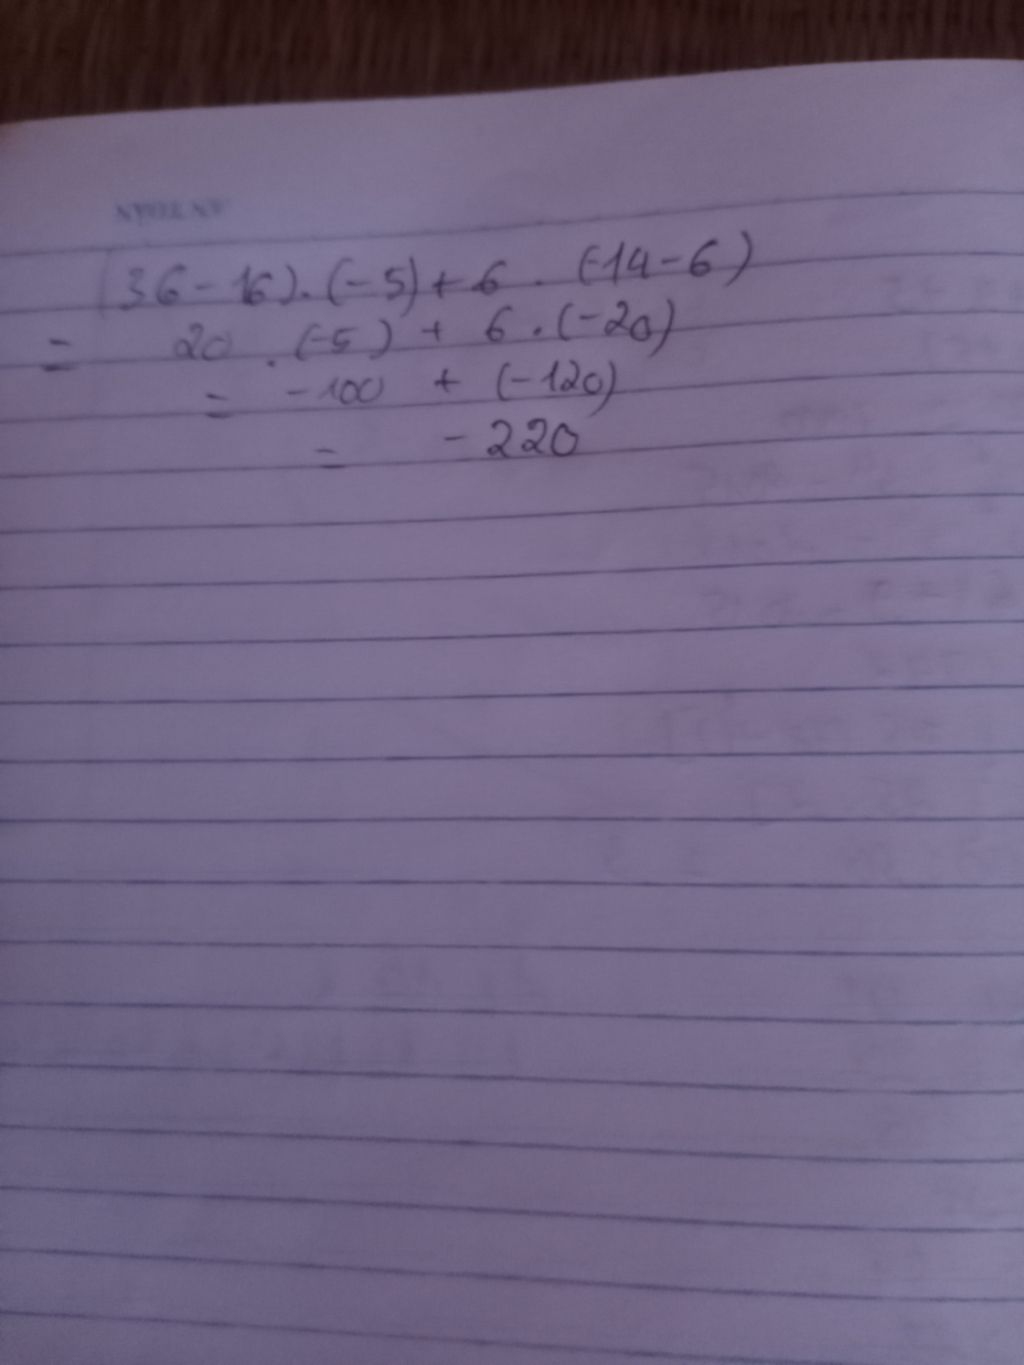 (36-16).(-5)+6.(-14-6)
= 20.(-5) + 6.(-20)
= -100 + (-120)
= -220